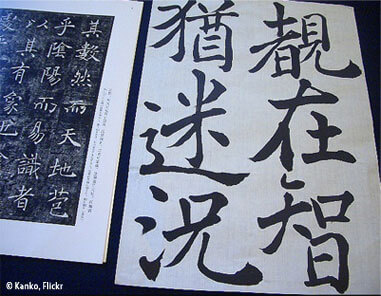 覩在智
猶迷況
其數然而天地苞
乎陰陽而易識者
以其有象
© Kanko, Flickr